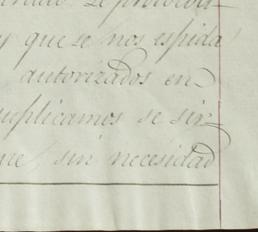 se protocoli
y que se nos espida
autorizados en
suplicamos se sir-
que, sin necesidad